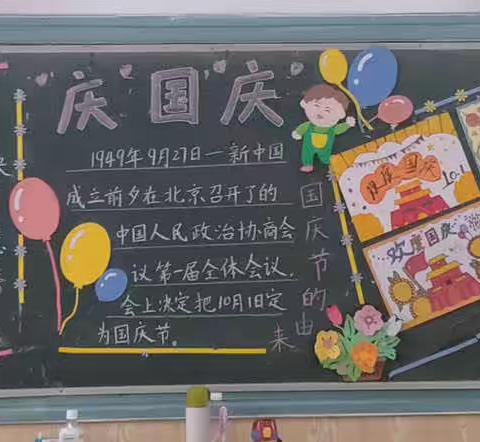 庆国庆
1949年9月27日一新中国
成立前夕在北京召开了的
中国人民政治协商会
议第一届全体会议.
会上决定把10月1日定
为国庆节。
国庆节的由来
欢度国庆
10.1
欢度国庆